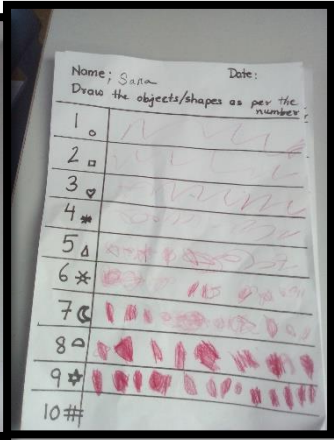 Name; Sana Date:
Draw the objects/shapes as per the
number:
1
2
3
4
5
6
7
8
9
10#